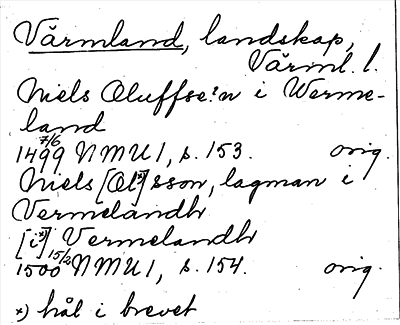 Värmland, landskap,
Värml. l.
Niels Oluffse:n i Werme-
land
7/6
1499 NMU 1, s. 153. orig.
Niels [Ol*)]sson, lagman i
Vermelandh
[i*)] Vermelandh
1500 15/2 NMU 1, s. 154. orig.
*) hål i brevet